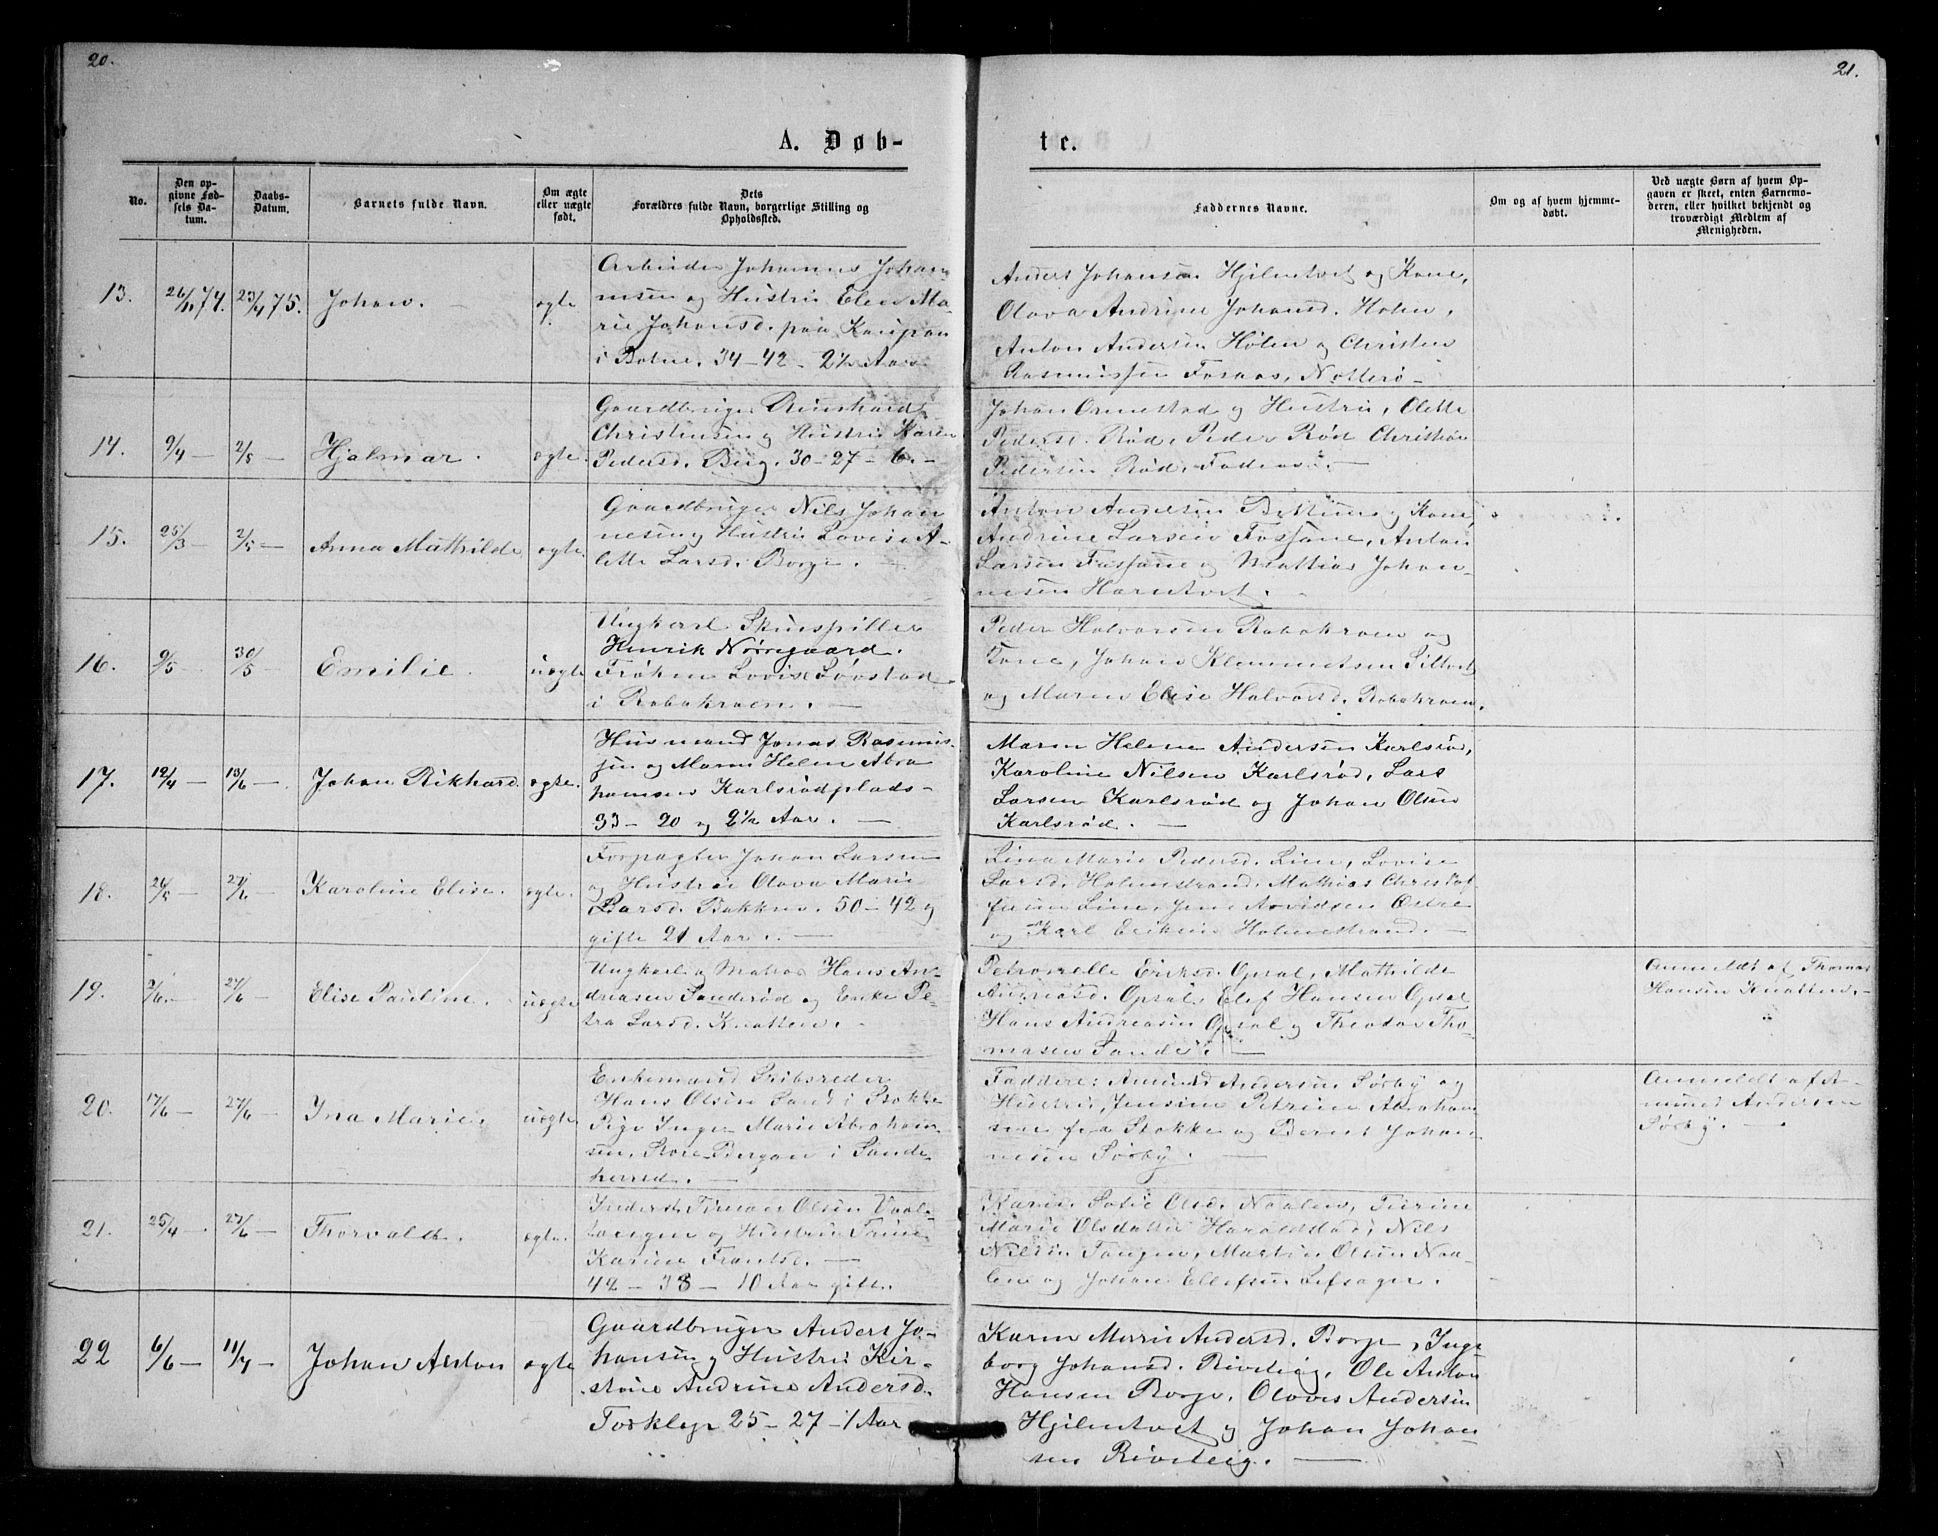 20.
21.
A. Døb-
te.
No.
Den op-
givne Fød-
sels Da-
tum.
Daabs-
Datum.
Barnets fulde Navn.
Om ægte
eller uægte
født.
Dets
Forældres fulde Navn, borgerlige Stilling og
Opholdssted.
Faddernes Navne.
Om og af hvem hjemme-
døbt.
Ved uægte Børn af hvem Op-
gaven er skeet, enten Barnemo-
deren, eller hvilket bekjendt og
troværdigt Medlem af
Menigheden.
13. 74. 23/4 75. Johan. ægte
Arbeider Johannes Johan-
nesen og Hustru Elen Ma-
rie Johansd. paa
i Botne. 34-42-2½ Aar
Anders Johansen Hjelmtvet og Kone,
Olava Andrine Johansd. Holm,
Anton Andersen Holm og Christen
Rasmussen Nøtterø-
14. 9/4 - 2/5 - Hjalmar. ægte.
Gaardbruger
Christensen og Hustru Karen
Pedersd. Berg. 30-27-6.-
Johan Ormestad og Hustru, Olette
Pedersd. Rød, Peder Rød Christian
Pedersen Rød.
15. 25/3 - 2/5 - Anna Mathilde ægte.
Gaardbruger Nils Johan
nesen og Hustru Lovise A-
lette Larsd. Borge. -
Anton Andersen og Kone,
Andrine Larsen Anton
Larsen og Mathias Johan-
nesen
16. 9/5 - 30/5 Emilie. uægte
Ungkarl Skuespiller
Henrik Nørregaard.
Frøken Lovise Løvstad
i Rabakraen. -
Peder Halvorsen Rabakraen og
Kone, Johan Klemmetsen
og Maren Elise Halvorsd. Rabakraen.
17. 12/4 - 13/6 - Johan Rikhard. ægte.
Husmand Jonas Rasmus-
sen og Maren Helene Abra
hamsen Karlsrødplads-
33 - 20 og 2½ Aar. -
Maren Helene Andersen Karlsrød,
Karoline Nilsen Karlsrød, Lars
Larsen Karlsrød og Johan Olsen
Karlsrød. -
18. 26/5 - 27/6 - Karoline Elise. ægte.
Forpagter Johan Larsen
og Hustru Olava Marie
Larsd. Bakken. 50-42 og
gifte 21 Aar. -
Lina Marie Pedersd. Line, Lovise
Larsd. Holmestrand, Mathias Christof-
fersen Line, Jens Arvidsen Østre
og Karl Eriksen Holmestrand. -
19. 27/6 - Elise Pauline. uægte
Ungkarl og Matros Hans An-
dreasen Sanderød og Pe-
tra Larsd. Knatten. -
Petronelle Eriksd. Opsal, Mathilde
Andreasd. Opsal, Elef Hansen Opsal
Hans Andreasen Opsal og Theodor Tho-
masen Sande. -
Anmeldt af Thomas
Hansen Knatten. -
20. 17/6 - 27/6 - Ina Marie. uægte
Enkemand Skibsreder
Hans Olsen Sand i Stokke
Pige Inger Marie Abraham
sen, Store Bergan i Sande-
herred. -
Faddere: Amund Andersen Sørby og
Hustru, Jensine Petrine Abraham
sen fra Stokke og Bernt Johan-
nesen Sørby. -
Anmeldt af A-
mund Andersen
Sørby. -
21. 25/4 - 27/6 - Thorvald. ægte.
Olsen
og Hustru Trine
Karine Frantsd. -
42 - 38 - 10 Aar gifte.
Karen Sofie Olsd. Naalen,
Marie Olsdatter Haraldstad, Nils
Nilsen Tangen, Martin Olsen Naa-
lene og Johan Ellefsen
22 6/6 - 11/7 - Johan Anton ægte
Gaardbruger Anders Jo-
hansen og Hustru Kir-
stine Andrine Andersd.
Torklep 25-27-1 Aar
Karen Marie Andersd. Borge, Inge-
borg Johansd. Riveteig, Ole Anton
Hansen Borge, Olaves Andersen
Hjelmtvet og Johan Johan-
sen Riveteig. -